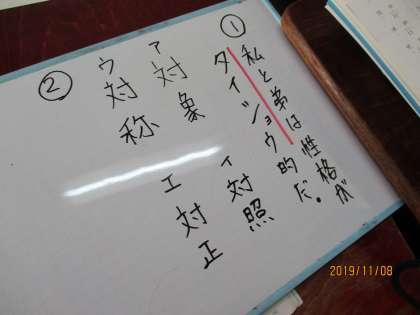 ①
私と弟は性格が
タイショウ的だ。
ア 対象
イ 対照
ウ 対称
エ 対正
②
2019/11/08